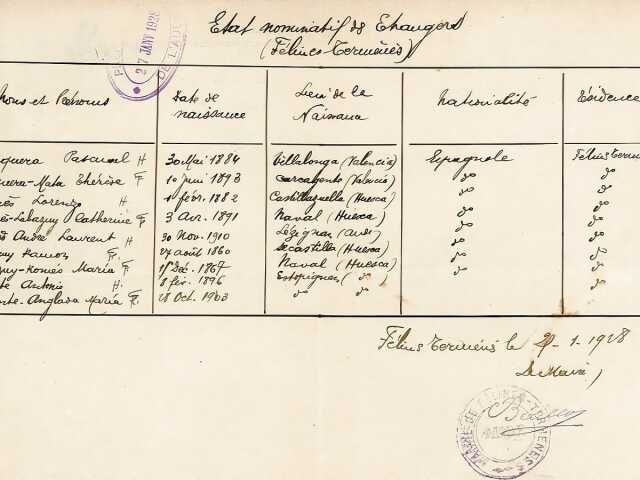 Etat nominatif de Etrangers
(Félines-Termenès)
27 JANV 1928
DE L'AUDE
Noms et Prénoms Date de naissance Lieu de la Naissance Nationalité Résidence
Pascual H 30 Mai 1884 Villalonga (Valencia) Espagnole Félines Termenès
-Mata Thérèse F 10 Juin 1893 Carcagente (Valencia) do do
Lorenzo H 1er févr. 1882 Castillazuelo (Huesca) do do
Catherine F 3 Avr. 1891 Naval (Huesca) do do
André Laurent H 30 Nov. 1910 Lézignan (Aude) do do
Ramon F. 27 août 1860 Secastilla (Huesca) do do
-Romés Maria F Déc. 1867 Naval (Huesca) do do
Antonio H. 8 fév. 1896 Estopignan ( do ) do do
-Anglada Maria F. 28 Oct. 1903 do do do do
Félines Termenès le 21-1-1928
Le Maire,
MAIRIE DE FÉLINES-TERMENÈS